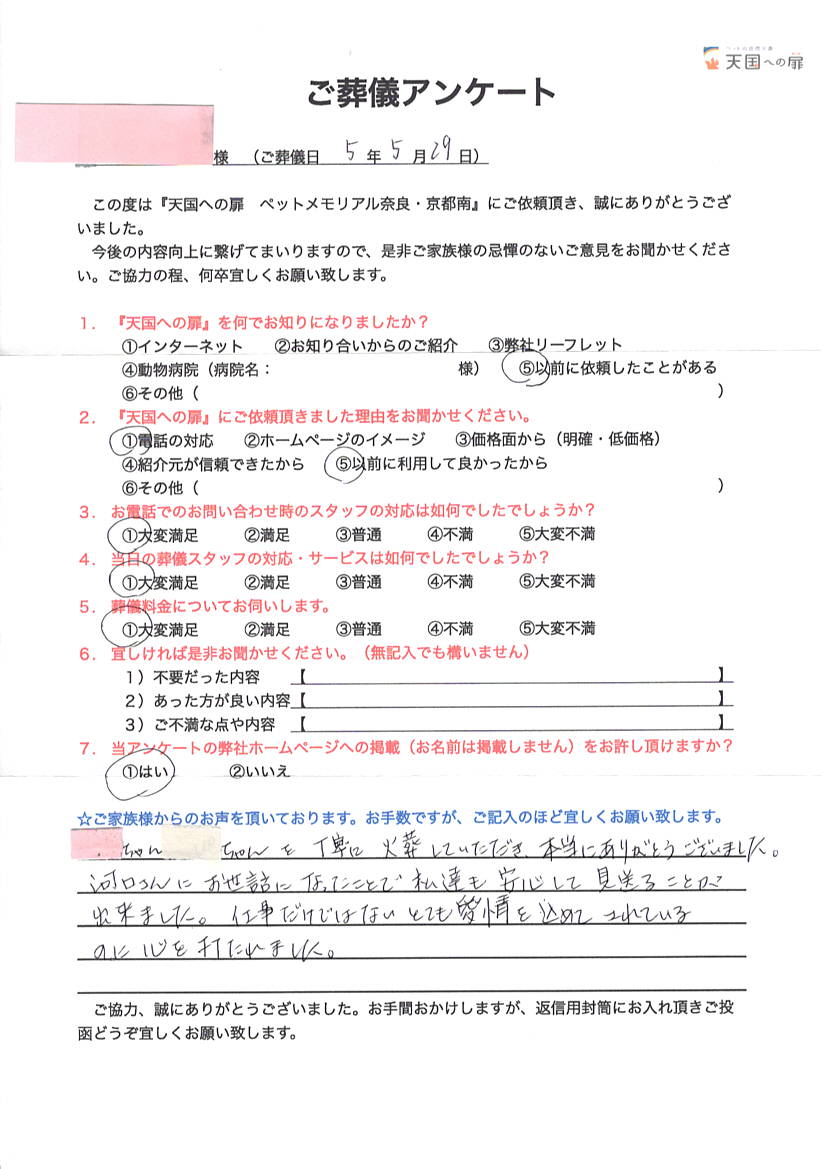 天国への扉
ご葬儀アンケート
様 （ご葬儀日 5 年 5 月 29 日）
この度は『天国への扉 ペットメモリアル奈良・京都南』にご依頼頂き、誠にありがとうござ
いました。
今後の内容向上に繋げてまいりますので、是非ご家族様の忌憚のないご意見をお聞かせくださ
い。ご協力の程、何卒宜しくお願い致します。
1． 『天国への扉』を何でお知りになりましたか？
①インターネット ②お知り合いからのご紹介 ③弊社リーフレット
④動物病院（病院名： 様） ⑤以前に依頼したことがある
⑥その他（ ）
2． 『天国への扉』にご依頼頂きました理由をお聞かせください。
①電話の対応 ②ホームページのイメージ ③価格面から（明確・低価格）
④紹介元が信頼できたから ⑤以前に利用して良かったから
⑥その他（ ）
3． お電話でのお問い合わせ時のスタッフの対応は如何でしたでしょうか？
①大変満足 ②満足 ③普通 ④不満 ⑤大変不満
4． 当日の葬儀スタッフの対応・サービスは如何でしたでしょうか？
①大変満足 ②満足 ③普通 ④不満 ⑤大変不満
5． 葬儀料金についてお伺いします。
①大変満足 ②満足 ③普通 ④不満 ⑤大変不満
6． 宜しければ是非お聞かせください。（無記入でも構いません）
1）不要だった内容 【 】
2）あった方が良い内容【 】
3）ご不満な点や内容 【 】
7． 当アンケートの弊社ホームページへの掲載（お名前は掲載しません）をお許し頂けますか？
①はい ②いいえ
☆ご家族様からのお声を頂いております。お手数ですが、ご記入のほど宜しくお願い致します。
ちゃん ちゃんを丁寧に火葬していただき、本当にありがとうございました。
河口さんにお世話になったことで私達も安心して見送ることが
出来ました。仕事だけではないとても愛情を込めてされている
のに心を打たれました。
ご協力、誠にありがとうございました。お手間おかけしますが、返信用封筒にお入れ頂きご投
函どうぞ宜しくお願い致します。